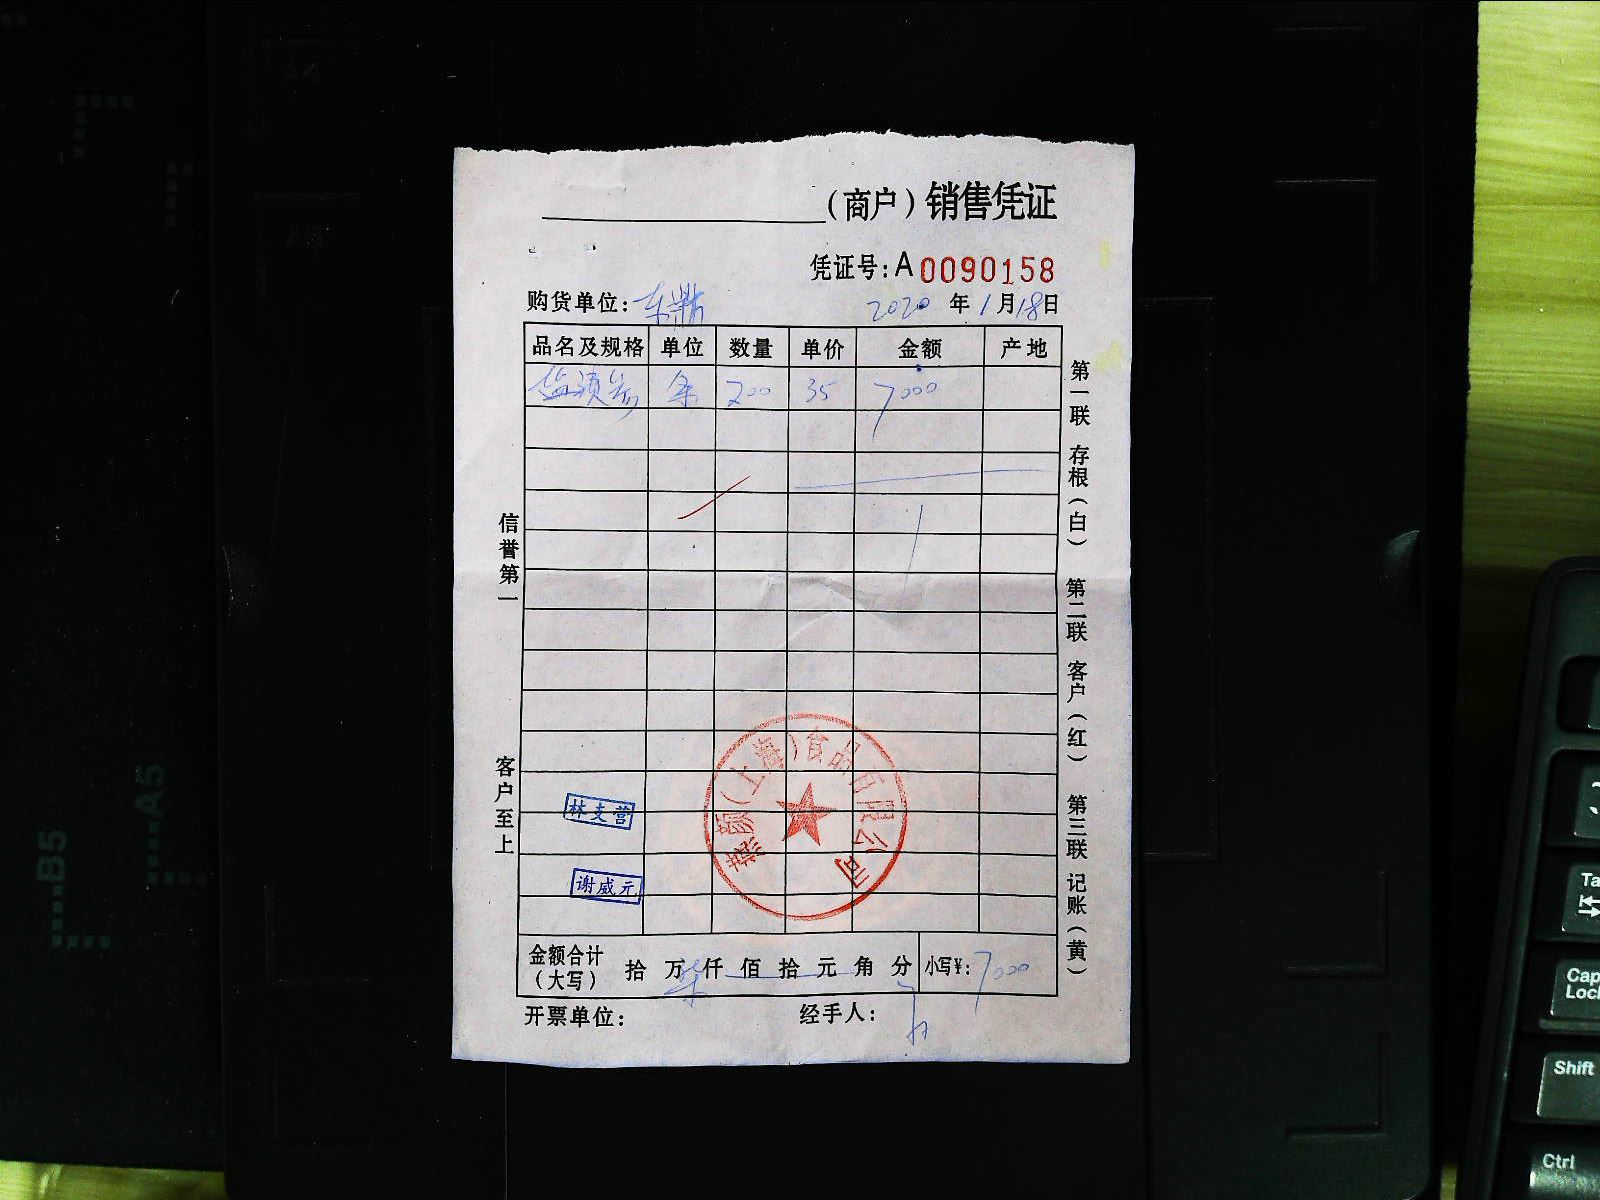 （商户）销售凭证
凭证号：A 0090158
购货单位：东鼎 2020 年 1 月 18 日
品名及规格 单位 数量 单价 金额 产地
条 200 35 7000
信誉第一
客户至上
第一联 存根（白） 第二联 客户（红） 第三联 记账（黄）
（上海）食品有限公司
林支营
谢威元
金额合计（大写） 拾 万 柒 仟 佰 拾 元 角 分 小写¥：7000
开票单位： 经手人：
B5
A5
Caps Lock
Shift
Ctrl